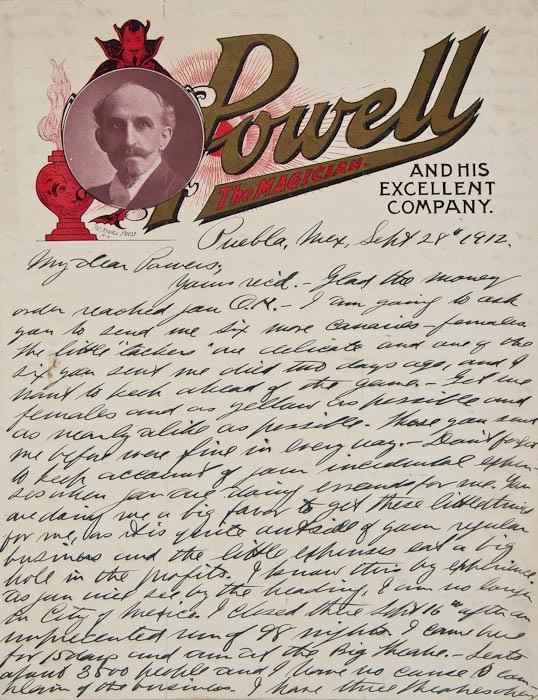 Powell
The Magician.
AND HIS
EXCELLENT
COMPANY.
Puebla, Mex, Sept 28" 1912.
My dear Powers,
Yours rc'd. - Glad the money
order reached you O.K. - I am going to ask
you to send me six more canaries - females
the little "tackers" are delicate and one of the
six you sent me died two days ago, and I
want to keep ahead of the game. - Get me
females and as yellow as possible and
as nearly alike as possible. Those you sent
me before were fine in every way. - Don't forget
to keep account of your incidental expen-
ses when you are doing errands for me. You
are doing me a big favor to get these little things
for me, as it is quite outside of your regular
business and the little expenses eat a big
hole in the profits. I know this by experience.
As you will see by the heading, I am no longer
in City of Mexico. I closed there Sept 16" after an
unprecented run of 98 nights. I came here
for 15 days and am at the Big Theatre - Seats
about 3500 people and I have no cause to com-
plain of the business. I have three